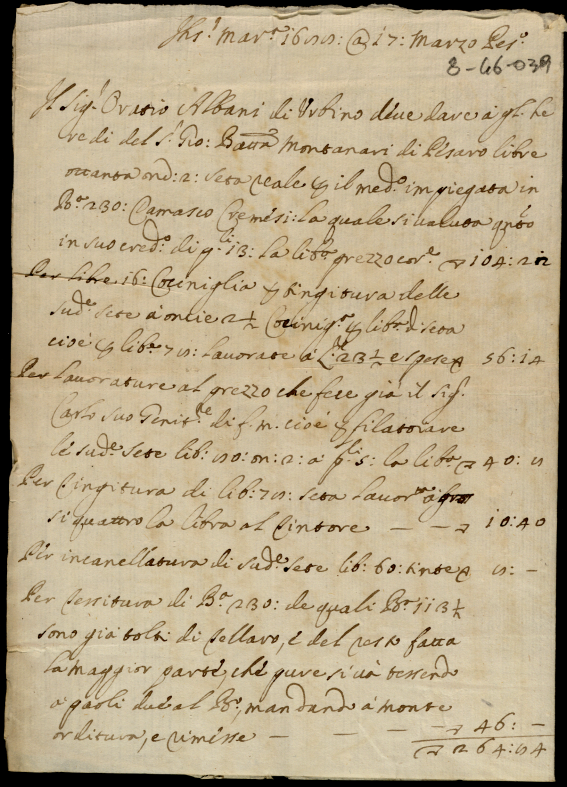 Jhs! Mar.ª 16 @ 17: Marzo Pes.º
8-66-039
Il Sig.r Oratio Albani di Urbino deve dare à gl. he
redi del S.r Gio: Batta Montanari di Pesaro libre
ottanta ond: 2: seta reale il med.º impiegata in
B.ª 230: Damasco Cremesi: la quale si valuta
in suo cred.º di 13: la lib.ª prezzo cor.e 104:
Per libre 16: Cociniglia tingitura delle
sud.e sete à oncie 2½ lib.ª di seta
cioè lib.e lavorate à 23½ e spese 56:14
Per lavorature al prezzo che fece già il sig.r
Carlo suo Genit.re di f. m. cioè filatoiare
le sud.e sete lib: on: 2: à 5: la lib.ª 40:
Per tingitura di lib: seta lavor.ta
si quattro la libra al tintore — — 10:40
Per incanellatura di sud.e sete lib: 60: tinte —
Per tessitura di B.ª 230: de quali B.ª 113½
sono già tolti di tellaro, e del resto fatta
la maggior parte, che pure si và tessendo
a paoli due al B.º, mandando à monte
orditura, e rimesse — — — — 46: —
264: